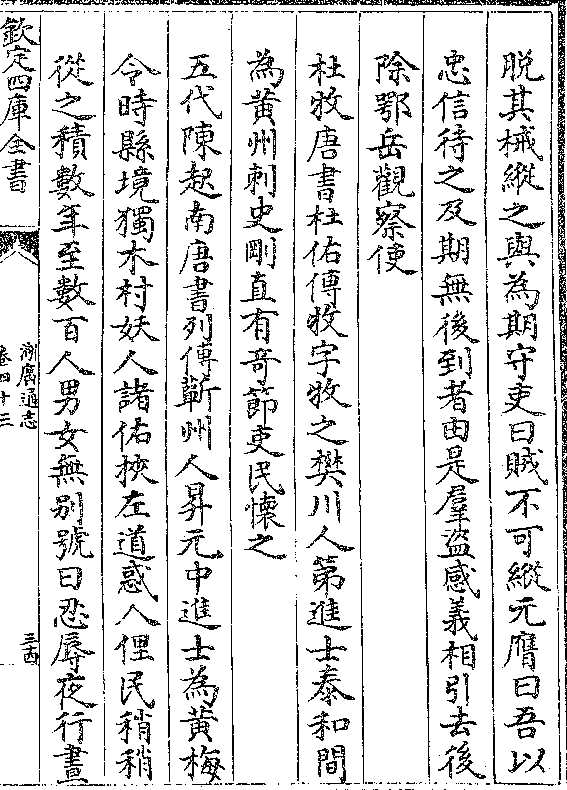 脱其械縱之與為期守吏曰賊不可縱元膺曰吾以
忠信待之及期無後到者由是羣盜感義相引去後
除鄂岳觀察使
杜牧唐書杜佑傳牧字牧之樊川人第進士泰和間
為黄州刺史剛直有竒節吏民懷之
五代陳起南唐書列傳蘄州人昇元中進士為黄梅
令時縣境獨木村妖人諸佑挾左道惑人俚民稍稍
從之積數年至數百人男女無别號曰忍辱夜行晝
欽定四庫全書
湖廣通志
卷四十三
三四